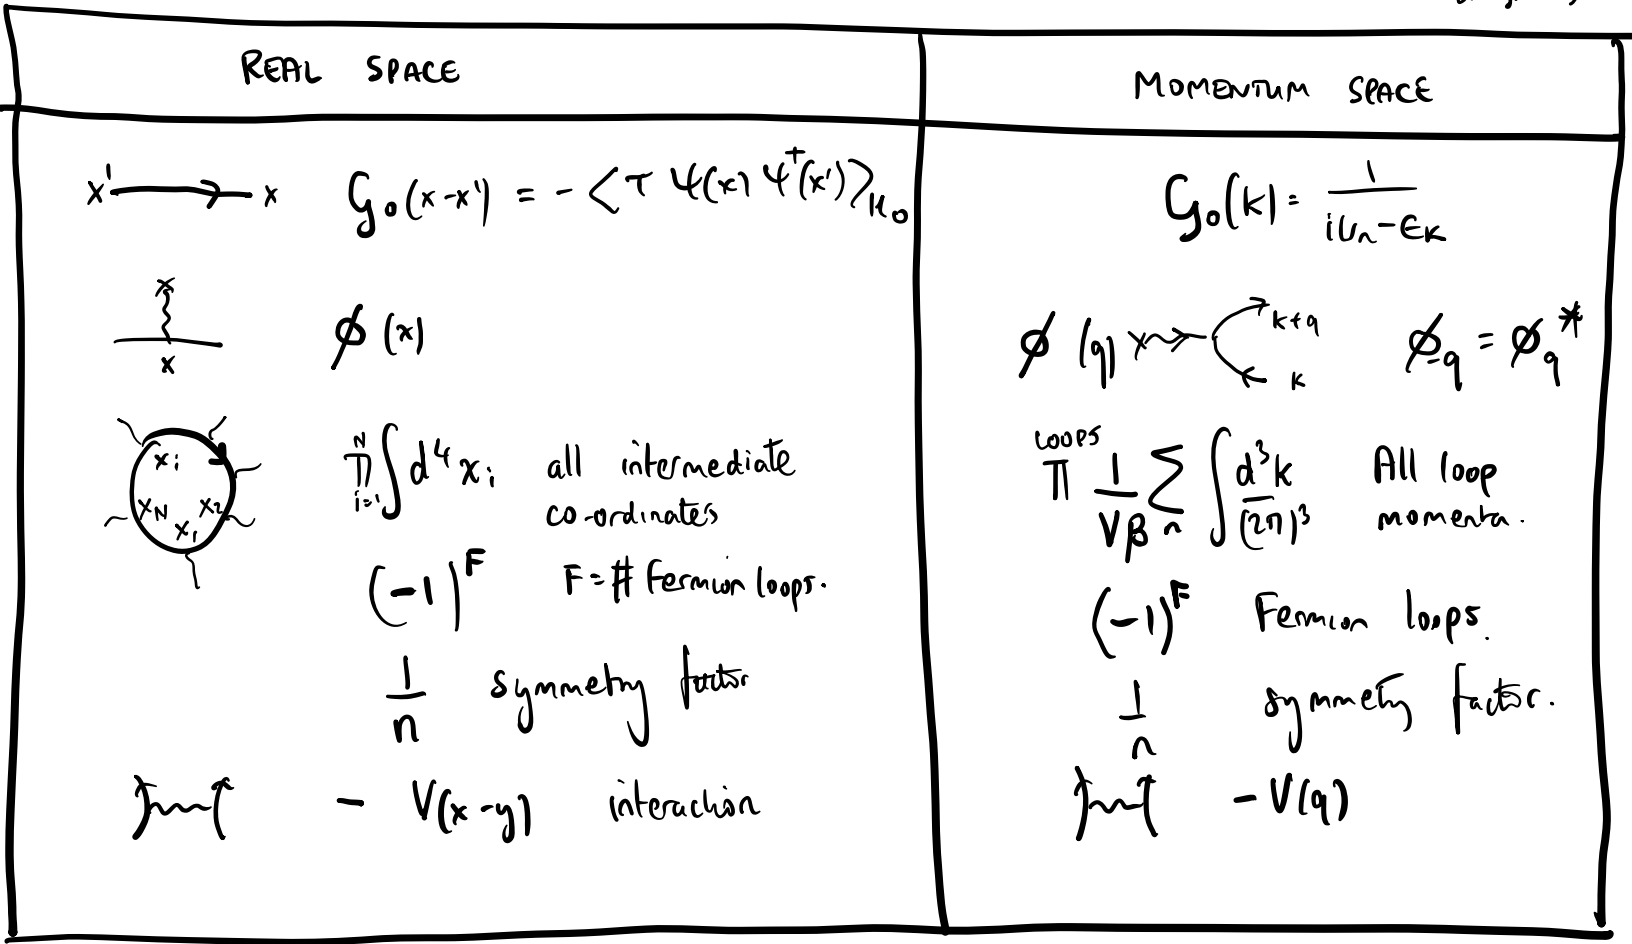 REAL SPACE
MOMENTUM SPACE
x' x G₀(x-x') = - <T ψ(x) ψ†(x')>H₀
G₀(k) = 1/(iνn - ϵk)
x
x
ϕ(x)
ϕ(q) k+q k ϕ-q = ϕq*
xi xN x1 x2
N ∏ i=1 ∫ d⁴xi all intermediate
co-ordinates
LOOPS ∏ 1/Vβ Σn ∫ d³k/(2π)³ All loop
momenta.
(-1)^F F = # Fermion loops.
(-1)^F Fermion loops.
1/n symmetry factor
1/n symmety factor.
- V(x-y) interaction
- V(q)